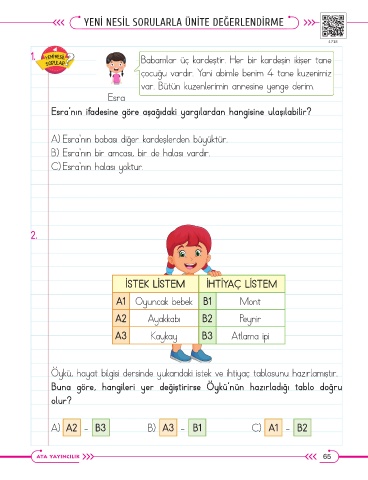 YENİ NESİL SORULARLA ÜNİTE DEĞERLENDİRME
1.
YENİ NESİL
SORULAR
Babamlar üç kardeştir. Her bir kardeşin ikişer tane
çocuğu vardır. Yani abimle benim 4 tane kuzenimiz
var. Bütün kuzenlerimin annesine yenge derim.
Esra
Esra'nın ifadesine göre aşağıdaki yargılardan hangisine ulaşılabilir?
A) Esra'nın babası diğer kardeşlerden büyüktür.
B) Esra'nın bir amcası, bir de halası vardır.
C) Esra'nın halası yoktur.
2.
İSTEK LİSTEM İHTİYAÇ LİSTEM
A1 Oyuncak bebek B1 Mont
A2 Ayakkabı B2 Peynir
A3 Kaykay B3 Atlama ipi
Öykü, hayat bilgisi dersinde yukarıdaki istek ve ihtiyaç tablosunu hazırlamıştır.
Buna göre, hangileri yer değiştirirse Öykü'nün hazırladığı tablo doğru
olur?
A) A2 - B3 B) A3 - B1 C) A1 - B2
ATA YAYINCILIK 65